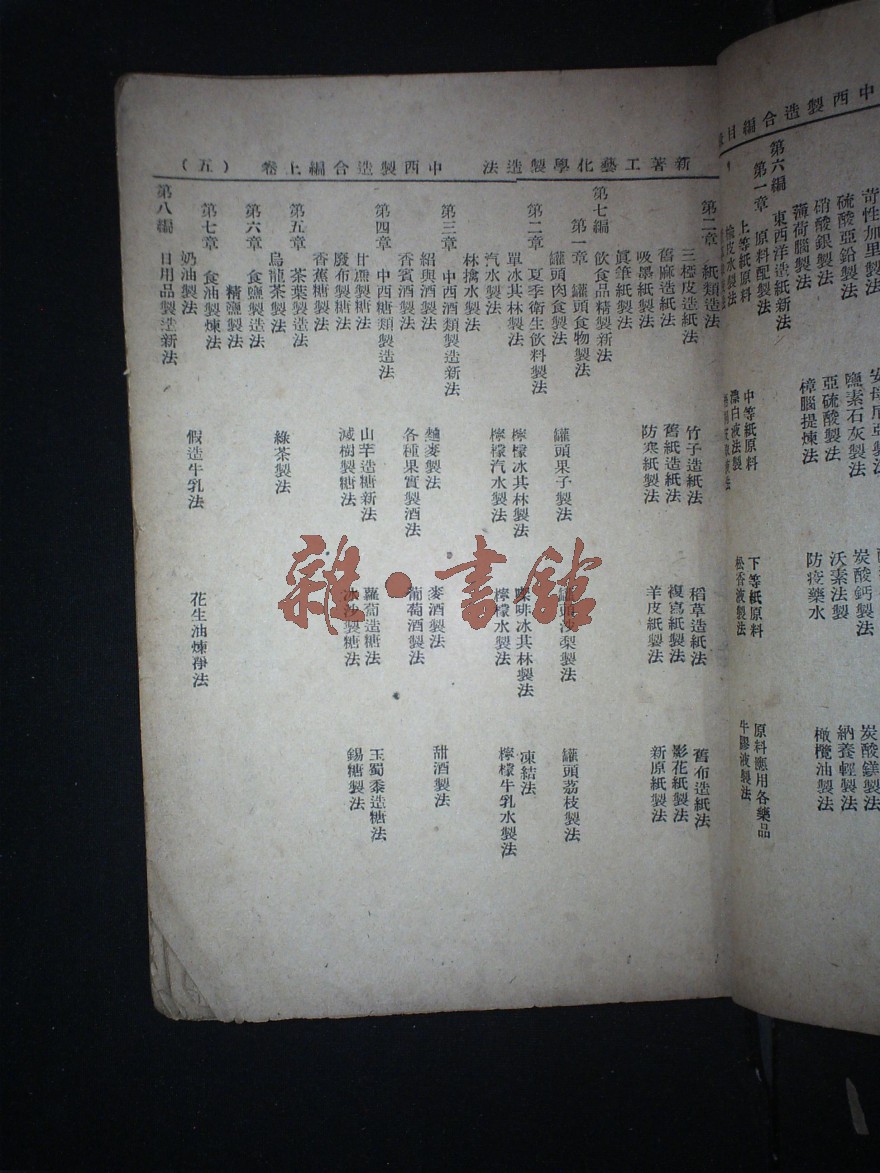 中西製造合編目
苛性加里製法
硫酸亞鉛製法
硝酸銀製法
薄荷腦製法
鹽素石灰製法
亞硫酸製法
樟腦提煉法
炭酸鈣製法
沃素法製
防疫藥水
炭酸鎂製法
納養輕製法
橄欖油製法
第六編 東西洋造紙新法
第一章 原料配製法
上等紙原料 中等紙原料 下等紙原料 原料應用各藥品
皮水製法 漂白液法製 松香液製法 牛膠液製法
新著工藝化學製造法 中西製造合編上卷 (五)
第二章 紙類造法
三椏皮造紙法 竹子造紙法 稻草造紙法 舊布造紙法
舊麻造紙法 舊紙造紙法 複寫紙製法 影花紙製法
吸墨紙製法 防寒紙製法 羊皮紙製法 新原紙製法
眞筆紙製法
第七編 飲食品精製新法
第一章 罐頭食物製法
罐頭肉食製法 罐頭果子製法 罐頭波梨製法 罐頭荔枝製法
第二章 夏季衛生飲料製法
單冰其林製法 檸檬冰其林製法 㗎啡冰其林製法 凍結法
汽水製法 檸檬汽水製法 檸檬水製法 檸檬牛乳水製法
林檎水製法
第三章 中西酒類製造新法
紹興酒製法 麯麥製法 麥酒製法 甜酒製法
香賓酒製法 各種果實製酒法 葡萄酒製法
第四章 中西糖類製造法
甘蔗製糖法 山芋造糖新法 蘿蔔造糖法 玉蜀黍造糖法
廢布製糖法 減樹製糖法 冰沙製糖法 錫糖製法
香蕉糖製法
第五章 茶葉製造法
烏龍茶製法 綠茶製法
第六章 食鹽製造法
精鹽製法
第七章 食油製煉法
奶油製法 假造牛乳法 花生油煉淨法
第八編 日用品製造新法
雜·書館